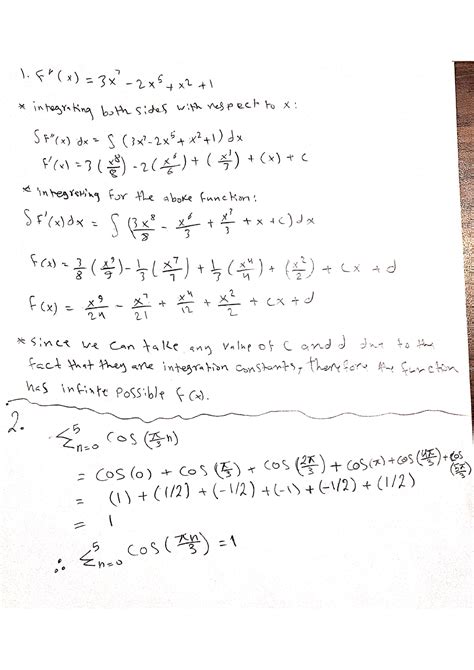 1. F"(x) = 3x⁷ - 2x⁵ + x² + 1
* integrating both sides with respect to x:
∫F"(x) dx = ∫ (3x⁷ - 2x⁵ + x² + 1) dx
F'(x) = 3 (x⁸/8) - 2 (x⁶/6) + (x³/3) + (x) + c
* integrating for the above function:
∫F'(x) dx = ∫ (3x⁸/8 - x⁶/3 + x³/3 + x + c) dx
f(x) = 3/8 (x⁹/9) - 1/3 (x⁷/7) + 1/3 (x⁴/4) + (x²/2) + cx + d
f(x) = x⁹/24 - x⁷/21 + x⁴/12 + x²/2 + cx + d
* Since we can take any value of C and d due to the
fact that they are integration constants, therefore the function
has infinte possible f(x).
2. Σ⁵ₙ₌₀ cos (π/3 n)
= cos(0) + cos (π/3) + cos (2π/3) + cos(π) + cos (4π/3) + cos (5π/3)
= (1) + (1/2) + (-1/2) + (-1) + (-1/2) + (1/2)
= 1
∴ Σ⁵ₙ₌₀ cos (πn/3) = 1